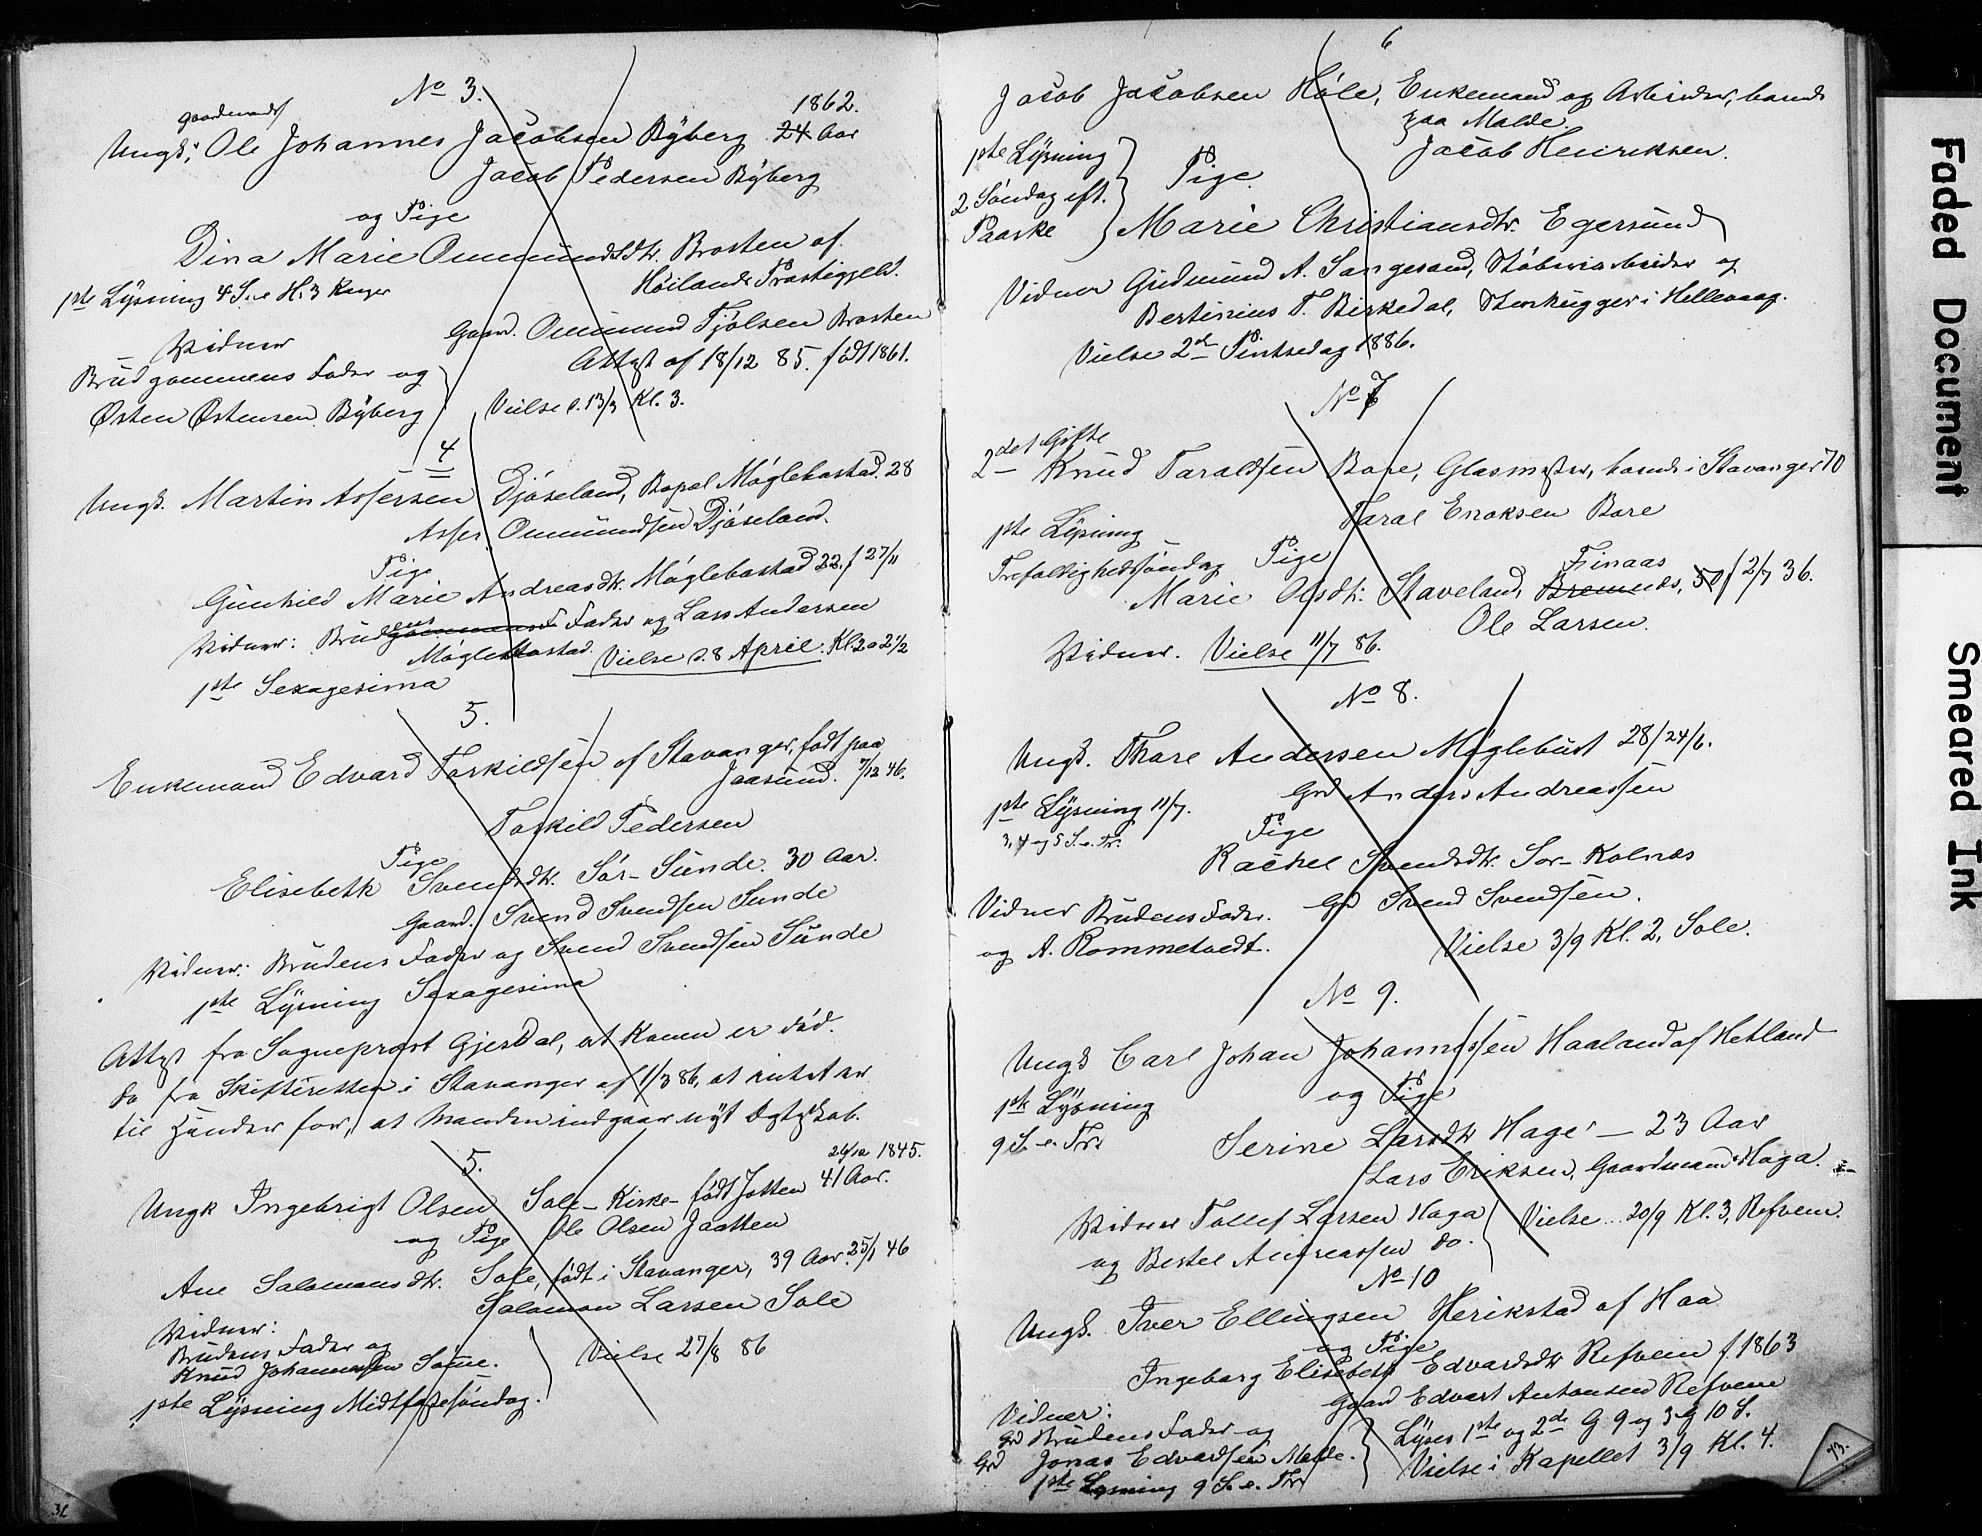 No 3.
gaardmands
1862.
Ungk. Ole Johannes Jacobsen Byberg 24 Aar
Jacob Pedersen Byberg
og Pige
Dina Marie Ommundsdtr. Brosten af
Høilands Præstegjeld.
1ste Lysning 4 S. e H. 3 Konger
Gaard. Ommund Tjølsen Brosten
Vidner
Attest af 18/12 85. født 1861.
Brudgommens Fader og
Østen Østensen Byberg
Vielse d. 13/3 Kl. 3.
4
Ungk. Martin Assersen Djøseland, Bopæl Møglebostad. 28
Asser Ommundsen Djøseland.
Pige
Gunhild Marie Andreasdtr. Møglebostad 22, f 27/11
Vidner: Brudens Fader og Lars Andersen
Møglebostad. Vielse d. 8 April. Kl. 2 a 2 1/2
1ste Sexagesima
5.
Enkemand Edvard Torkildsen af Stavanger, født paa
Jaasund. 7/12 46.
Torkild Pedersen
Pige
Elisebeth Svendsdtr. Sør-Sunde. 30 Aar.
Gaard. Svend Svendsen Sunde
Vidner: Brudens Fader og Svend Svendsen Sunde
1ste Lysning Sexagesima
Attest fra Sogneprest Gjerdal, at Konen er død.
do fra Skifteretten i Stavanger af 1/3 86, at intet er
til Hinder for, at Manden indgaar nyt Ægteskab.
5.
26/12 1845.
Ungk Ingebrigt Olsen Sole-Kirke- født Jotten 41 Aar.
og Pige Ole Olsen Jaatten
Ane Salomonsdtr. Sole, født i Stavanger, 39 Aar. 25/1 46
Salomon Larsen Sole
Vidner:
Brudens Fader og
Knud Johannesen Sømme.
Vielse 27/8 86
1ste Lysning Midtfastesøndag.
6
Jacob Jacobsen Høle, Enkemand og Arbeider, boende
paa Malde.
Jacob Henriksen.
1ste Lysning
2 Søndag eft.
Paaske
Pige
Marie Christiansdtr. Egersund
Vidner Gudmund A. Sangesand, Støberiarbeider og
Bertinius T. Birkedal, Stenhugger i Hillevaag.
Vielse 2den Pintsedag 1886.
No 7
2det Gifte
Knud Taraldsen Bore, Glasmester, boende i Stavanger 70
Taral Enoksen Bore
1ste Lysning
Trefoldighedssøndag Pige
Finaas
Marie Olsdtr. Staveland, Bremnæs, 50 f 2/7 36.
Ole Larsen.
Vidner. Vielse 11/7 86.
No 8.
Ungk. Thore Andersen Møglebust 28/24/6.
Grd Anders Andreassen
1ste Lysning 11/7.
3, 4 og 5 S. e. Tr.
Pige
Rachel Svendsdtr. Sør-Kolnæs
Grd Svend Svendsen.
Vidner Brudens Fader.
og A. Rommetvedt.
Vielse 3/9 Kl. 2, Sole.
No 9.
Ungk Carl Johan Johannessen Haaland af Hetland
og Pige
1ste Lysning
9 S. e. Tr.
Serine Larsdtr Hage - 23 Aar
Lars Eriksen, Gaardmand Haga.
Vidner Tollef Larsen Haga
og Bertel Andreassen do.
Vielse 20/9 Kl. 3, Refvem.
No 10
Ungk. Iver Ellingsen Herikstad af Haa
og Pige
Ingeborg Elisebeth Edvardsdtr Refvem f. 1863
Gaard Edvart Antonsen Refvem
Vidner:
Grd Brudens Fader og
Grd Jonas Edvardsen Malde.
1ste Lysning 9 S. e. Tr.
Lyses 1ste og 2de G 9 og 3 G 10 S.
Vielse i Kapellet 3/9 Kl. 4.
73.
32
Faded Document
Smeared Ink